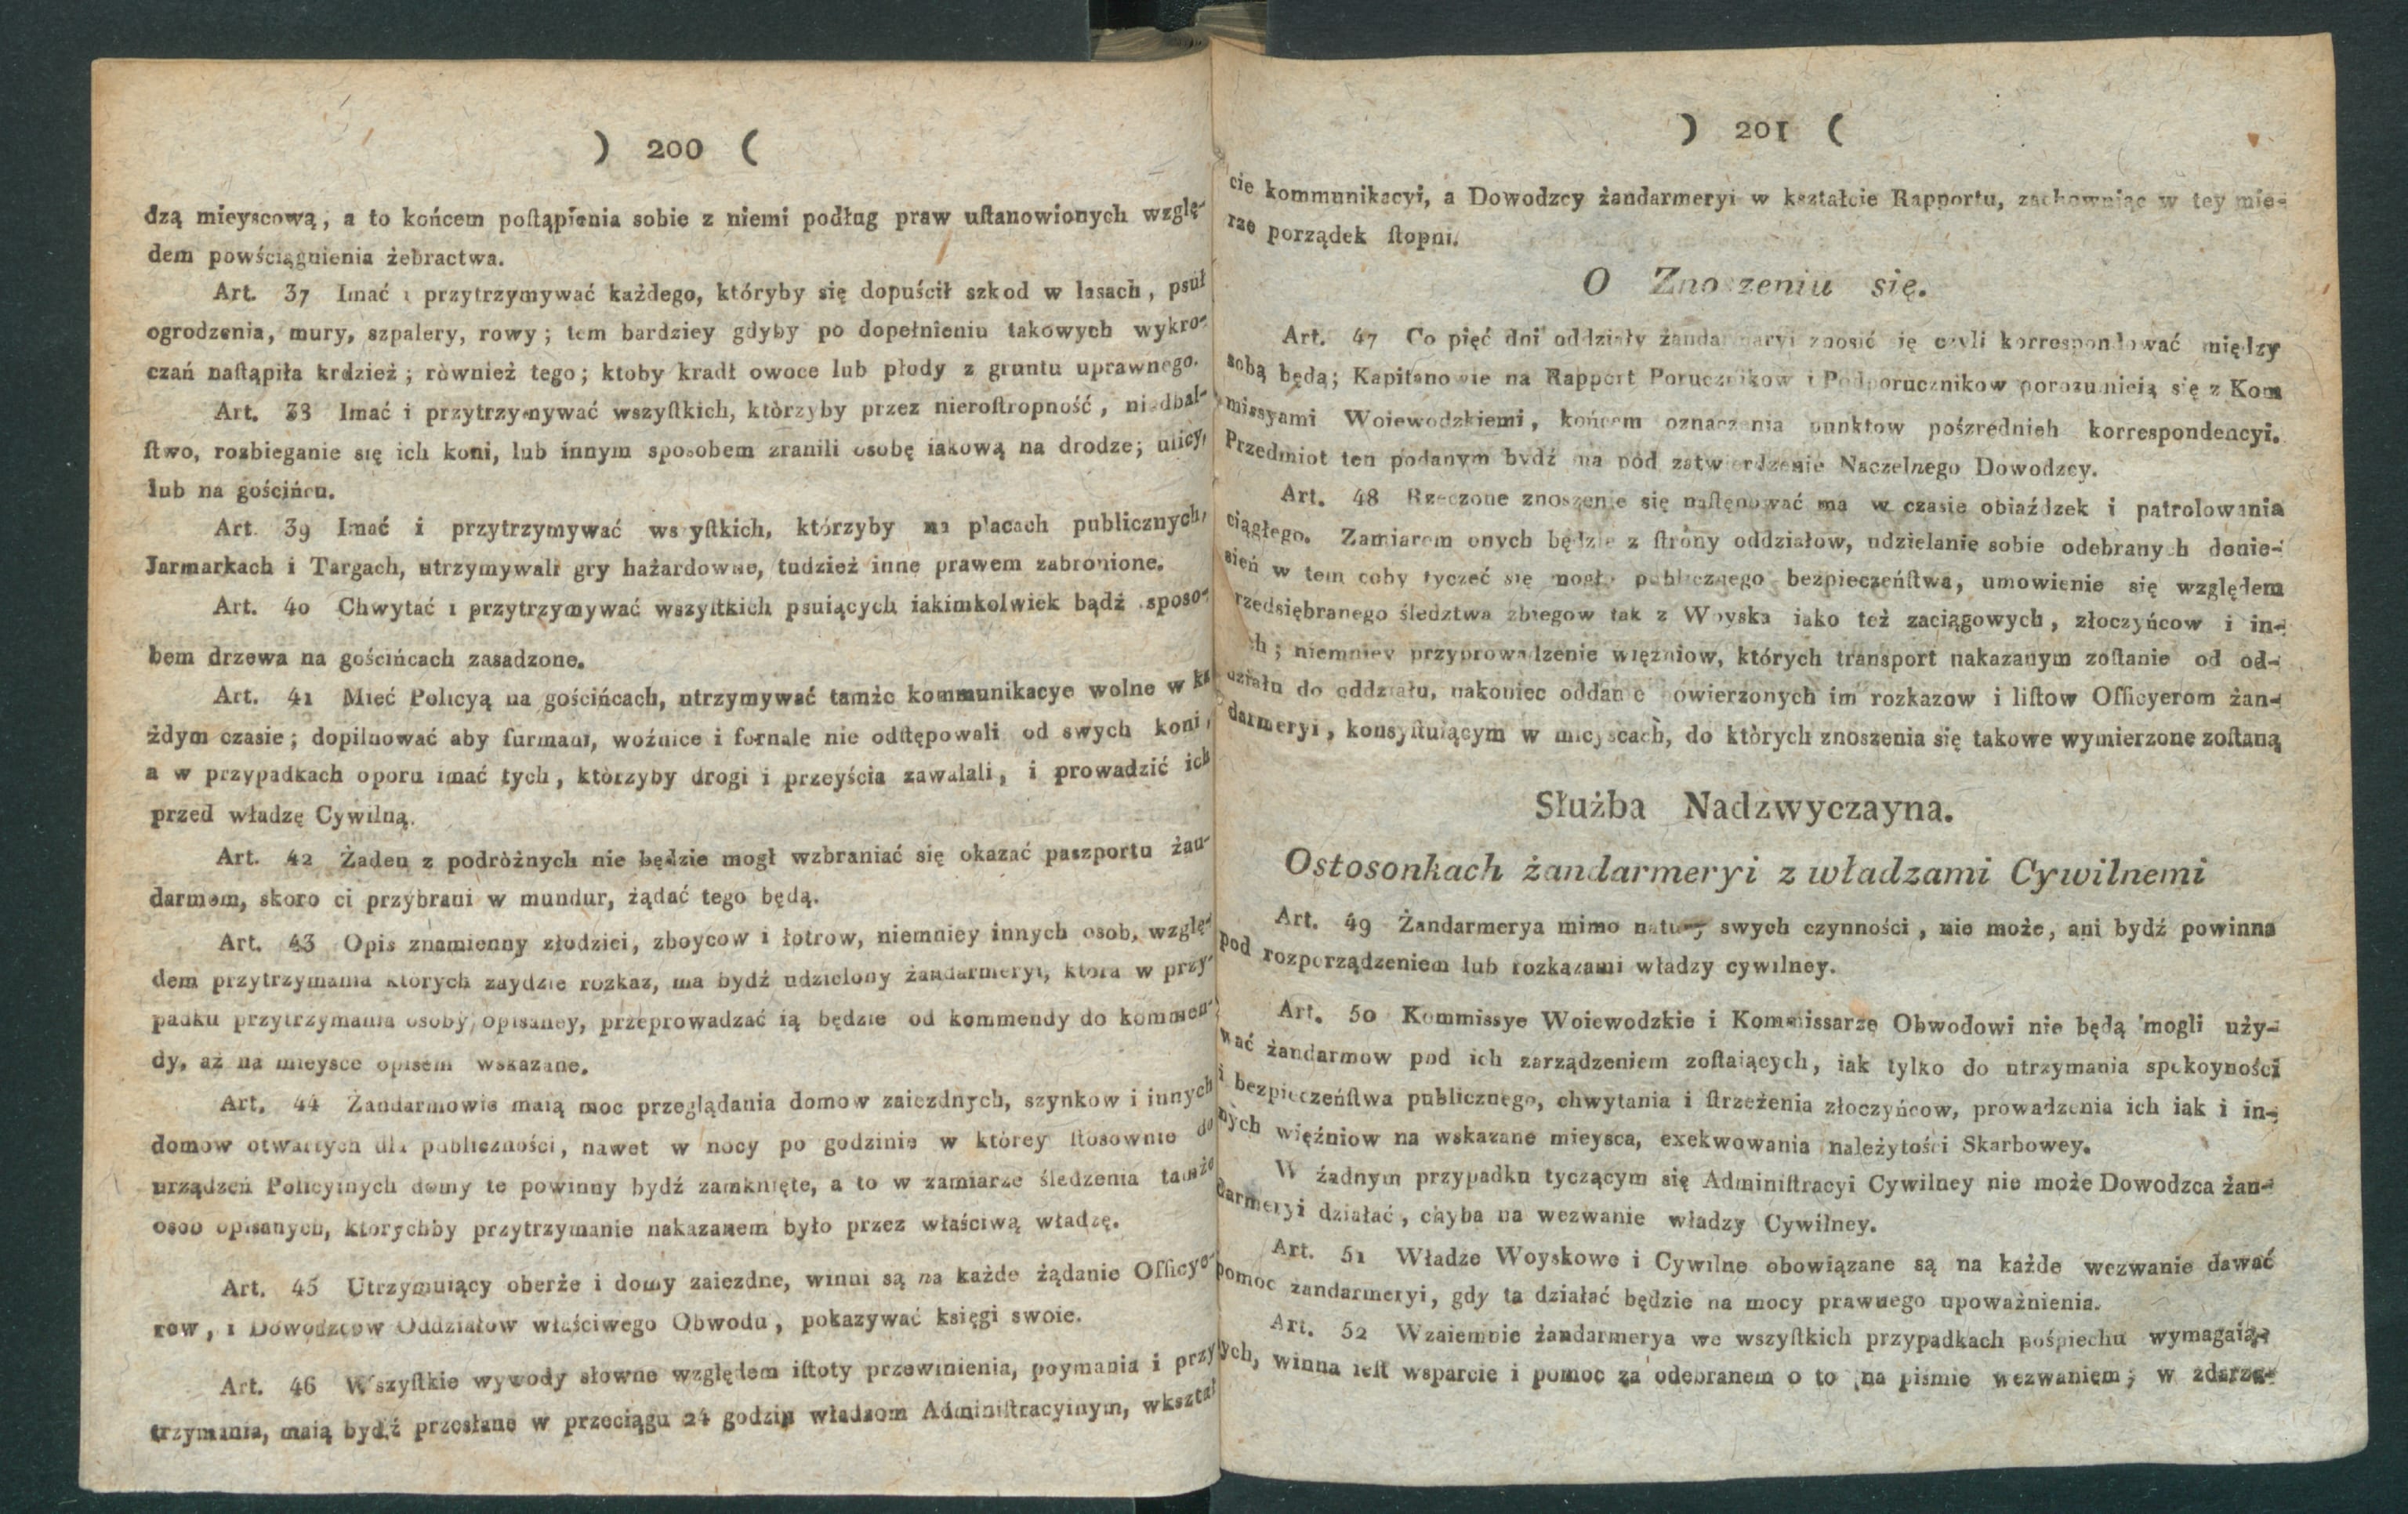 ) 200 (
dzą mieyscową, a to końcem poſtąpienia sobie z niemi podług praw uſtanowionych wzglę-
dem powściągnienia żebractwa.
Art. 37 Imać i przytrzymywać każdego, któryby się dopuścił szkod w lasach, psuł
ogrodzenia, mury, szpalery, rowy; tem bardziey gdyby po dopełnieniu takowych wykro-
czań naſtąpiła krdzież; również tego; ktoby kradł owoce lub płody z gruntu uprawnego.
Art. 38 Imać i przytrzymywać wszyſtkich, którzyby przez nieroſtropność, niedbal-
ſtwo, rozbieganie się ich koni, lub innym sposobem zranili osobę iakową na drodze; ulicy,
lub na gościńcu.
Art. 39 Imać i przytrzymywać wszyſtkich, którzyby na placach publicznych,
Jarmarkach i Targach, utrzymywali gry hażardowne, tudzież inne prawem zabronione.
Art. 40 Chwytać i przytrzymywać wszyſtkich psuiących iakimkolwiek bądź sposo-
bem drzewa na gościńcach zasadzone.
Art. 41 Mieć Policyą na gościńcach, utrzymywać tamże kommunikacye wolne w ka
żdym czasie; dopilnować aby furmani, woźnice i fornale nie odſtępowali od swych koni,
a w przypadkach oporu imać tych, którzyby drogi i przeyścia zawalali, i prowadzić ich
przed władzę Cywilną.
Art. 42 Żaden z podróżnych nie będzie mogł wzbraniać się okazać paszportu żan-
darmom, skoro ci przybrani w mundur, żądać tego będą.
Art. 43 Opis znamienny złodziei, zboycow i łotrow, niemniey innych osob, wzglę-
dem przytrzymania ktorych zaydzie rozkaz, ma bydź udzielony żandarmeryi, ktora w przy-
padku przytrzymania osoby opisaney, przeprowadzać ią będzie od kommendy do kommen-
dy, aż na mieysce opisem wskazane.
Art. 44 Żandarmowie maią moc przeglądania domow zaiezdnych, szynkow i innych
domow otwartych dla publiczności, nawet w nocy po godzinie w którey ſtosownie do
urządzeń Policyinych domy te powinny bydź zamknięte, a to w zamiarze śledzenia tamże
osob opisanych, ktorychby przytrzymanie nakazanem było przez właściwą władzę.
Art. 45 Utrzymuiący oberże i domy zaiezdne, winni są na każde żądanie Officye-
row, i Dowodzcow Oddziałow właściwego Obwodu, pokazywać księgi swoie.
Art. 46 Wszyſtkie wywody słowne względem iſtoty przewinienia, poymania i przy
trzymania, maią bydź przesłane w przeciągu 24 godzin władzom Adminiſtracyinym, wkształ
) 201 (
cie kommunikacyi, a Dowodzcy żandarmeryi w kształcie Rapportu, zachowuiąc w tey mie-
rze porządek ſtopni.
O Znoszeniu się.
Art. 47 Co pięć dni oddziały żandarmaryi znosić się czyli korrespondować między
sobą będą; Kapitanowie na Rapport Porucznikow i Podporucznikow porozumieią się z Kom
missyami Woiewodzkiemi, końcem oznaczenia punktow pośzrednieh korrespondencyi.
Przedmiot ten podanym bydź ma pod zatwierdzenie Naczelnego Dowodzcy.
Art. 48 Rzeczone znoszenie się naſtępować ma w czasie obiaźdzek i patrolowania
ciągłego. Zamiarem onych będzie z ſtrony oddziałow, udzielanie sobie odebranych donie-
sień w tem coby tyczeć się mogło publicznego bezpieczeńſtwa, umowienie się względem
rzedsiębranego śledztwa zbiegow tak z Woyska iako też zaciągowych, złoczyńcow i in-
ch; niemniey przyprowadzenie więźniow, których transport nakazanym zoſtanie od od-
działu do oddziału, nakoniec oddanie powierzonych im rozkazow i liſtow Officyerom żan-
darmeryi, konsyſtuiącym w mieyscach, do których znoszenia się takowe wymierzone zoſtaną
Służba Nadzwyczayna.
Ostosonkach żandarmeryi z władzami Cywilnemi
Art. 49 Żandarmerya mimo natury swych czynności, nie może, ani bydź powinna
pod rozporządzeniem lub rozkazami władzy cywilney.
Art. 50 Kommissye Woiewodzkie i Kommissarze Obwodowi nie będą mogli uży-
wać żandarmow pod ich zarządzeniem zoſtaiących, iak tylko do utrzymania spokoyności
i bezpieczeńſtwa publicznego, chwytania i ſtrzeżenia złoczyńcow, prowadzenia ich iak i in-
nych więźniow na wskazane mieysca, exekwowania należytości Skarbowey.
W żadnym przypadku tyczącym się Adminiſtracyi Cywilney nie może Dowodzca żan-
darmeryi działać, chyba na wezwanie władzy Cywilney.
Art. 51 Władze Woyskowe i Cywilne obowiązane są na każde wezwanie dawać
pomoc żandarmeryi, gdy ta działać będzie na mocy prawnego upoważnienia.
Art. 52 Wzaiemnie żandarmerya we wszyſtkich przypadkach pośpiechu wymagaią-
ych, winna ieſt wsparcie i pomoc za odebranem o to na piśmie wezwaniem; w zdarze-